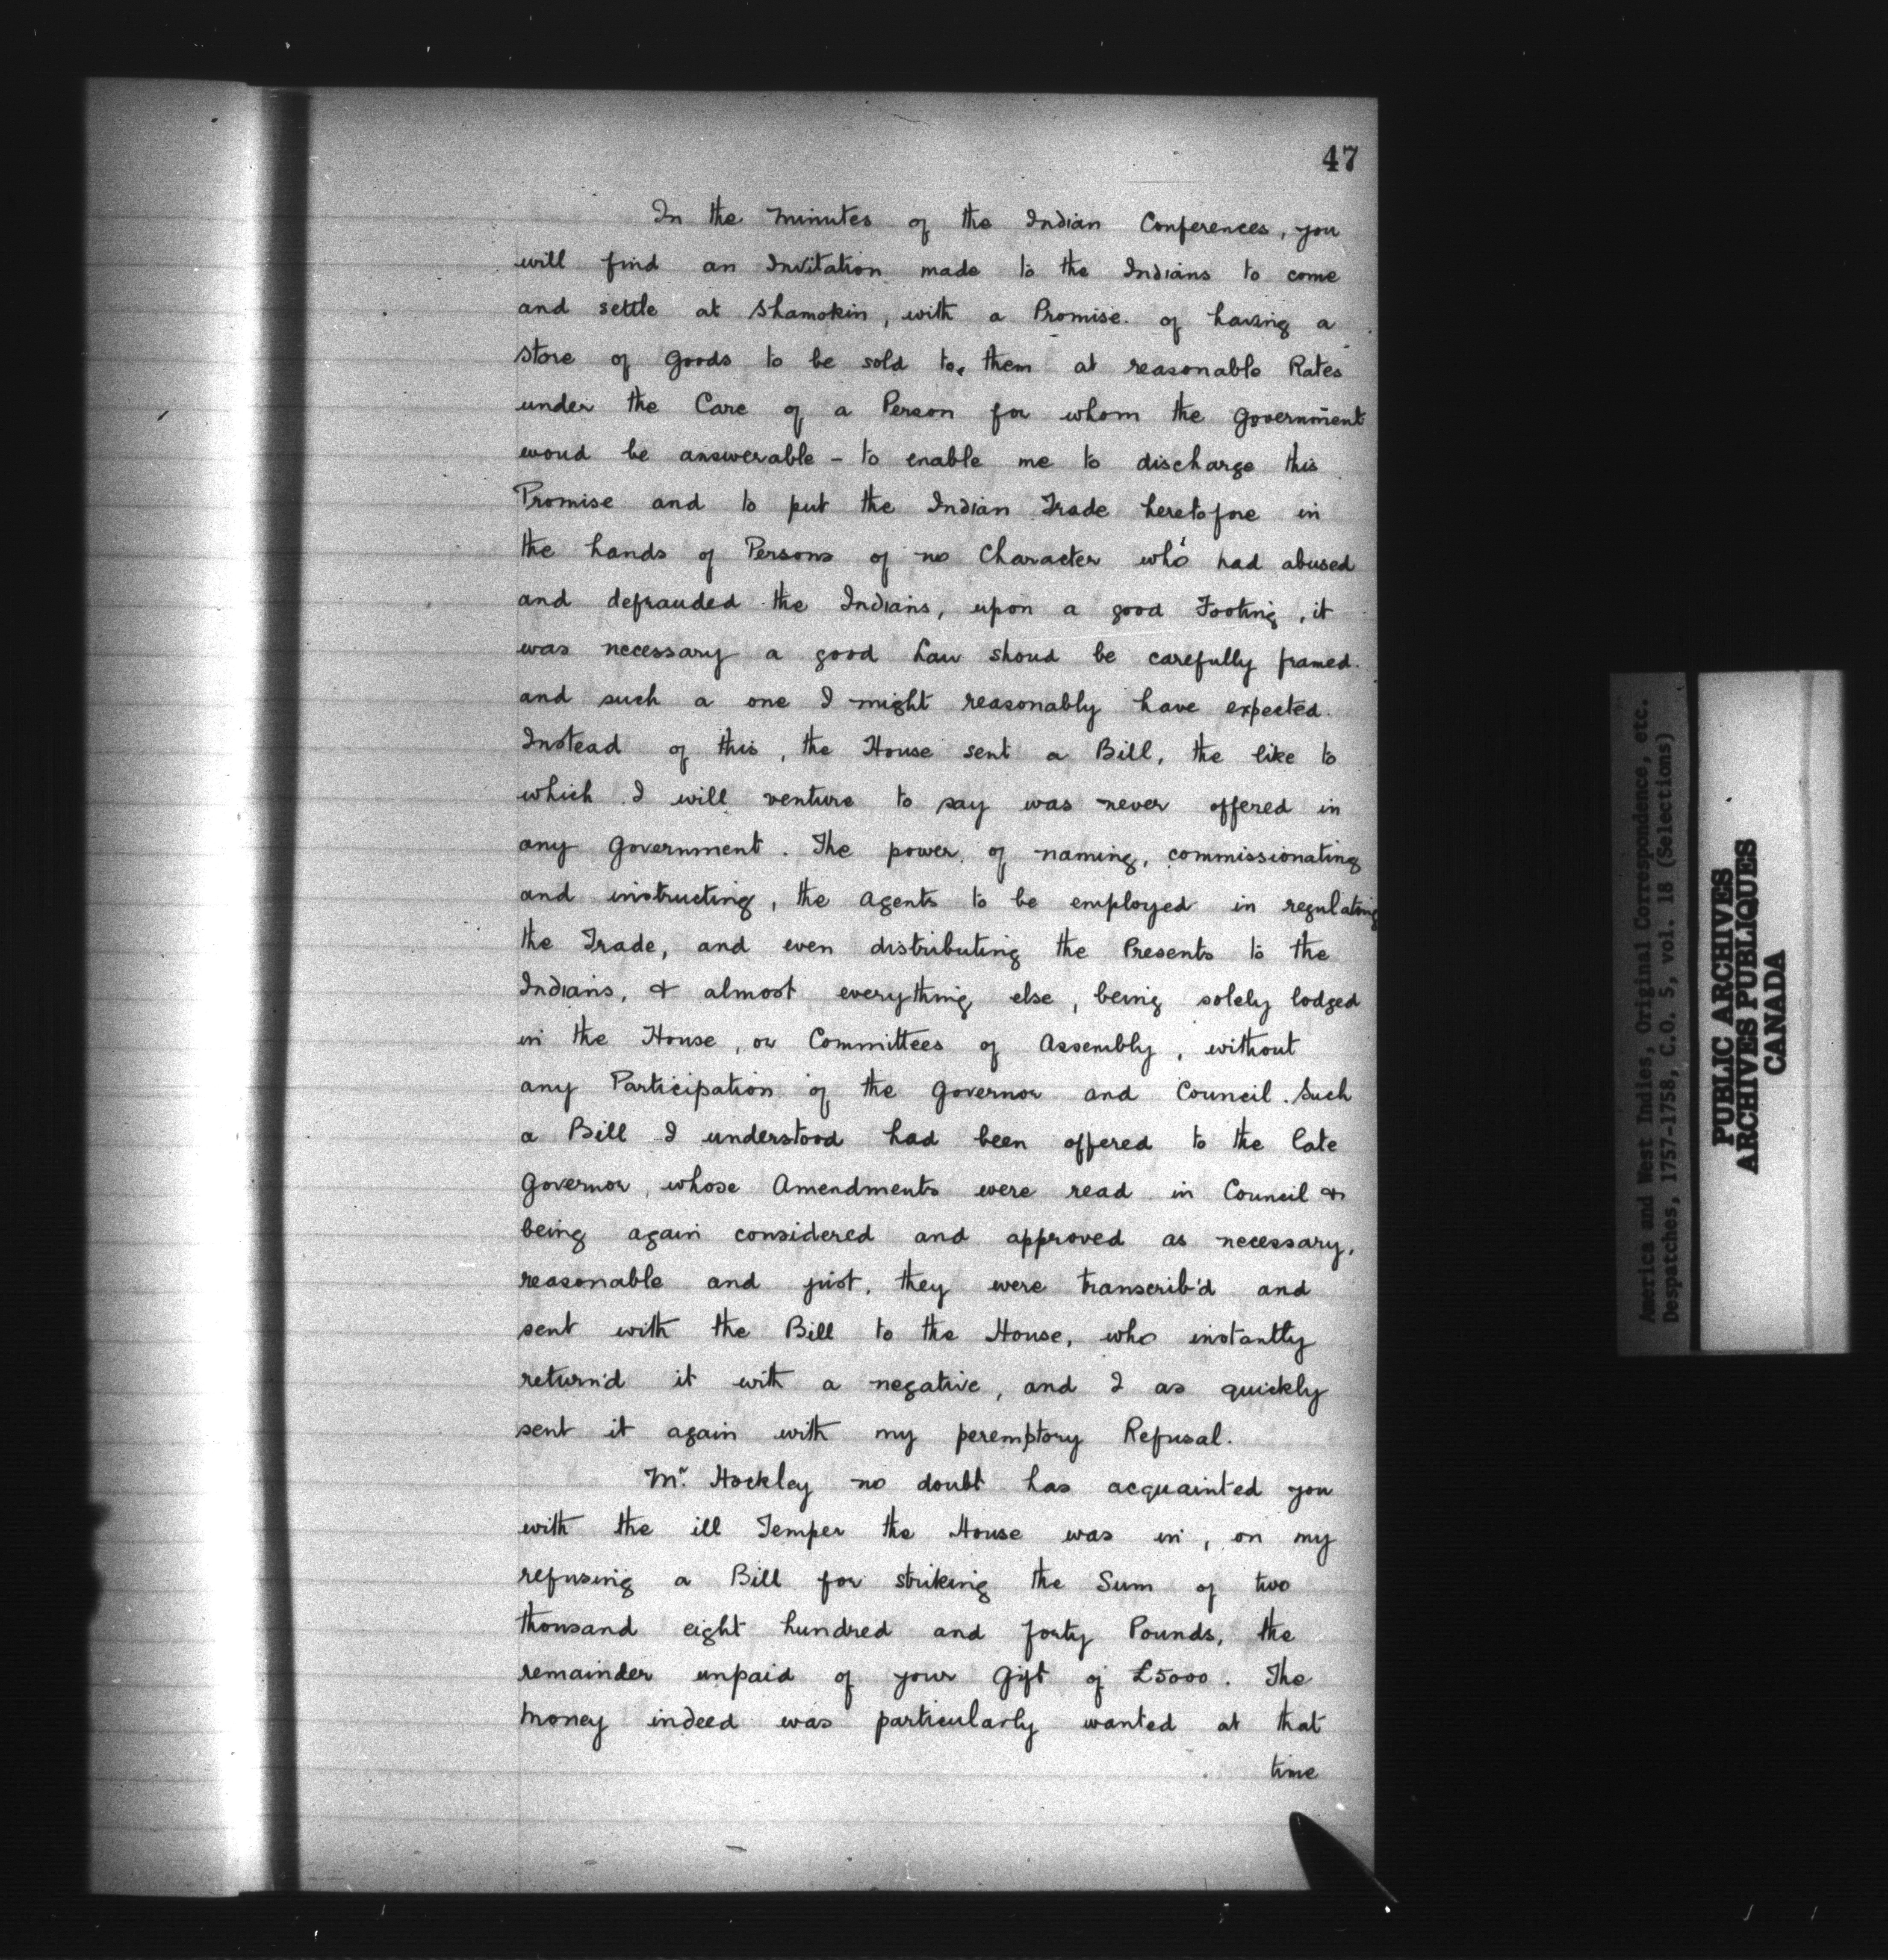 47
In the Minutes of the Indian Conferences, you
will find an Invitation made to the Indians to come
and settle at Shamokin, with a Promise of having a
Store of Goods to be sold to them at reasonable Rates
under the Care of a Person for whom the Government
woud be answerable - to enable me to discharge this
Promise and to put the Indian Trade heretofore in
the hands of Persons of no Character who had abused
and defrauded the Indians, upon a good Footing, it
was necessary a good Law shoud be carefully framed.
and such a one I might reasonably have expected.
Instead of this, the House sent a Bill, the like to
which I will venture to say was never offered in
any Government. The power of naming, commissionating
and instructing, the Agents to be employed in regulating
the Trade, and even distributing the Presents to the
Indians, & almost everything else, being solely lodged
in the House, or Committees of Assembly, without
any Participation of the Governor and Council. Such
a Bill I understood had been offered to the late
Governor, whose Amendments were read in Council &
being again considered and approved as necessary,
reasonable and just, they were transcrib'd and
sent with the Bill to the House, who instantly
return'd it with a negative, and I as quickly
sent it again with my peremptory Refusal.
Mr. Hockley no doubt has acquainted you
with the ill Temper the House was in, on my
refusing a Bill for striking the Sum of two
thousand eight hundred and forty Pounds, the
remainder unpaid of your Gift of £5000. The
Money indeed was particularly wanted at that
time
America and West Indies, Original Correspondence, etc.
Despatches, 1757-1758, C.O. 5, vol. 18 (Selections)
PUBLIC ARCHIVES
ARCHIVES PUBLIQUES
CANADA